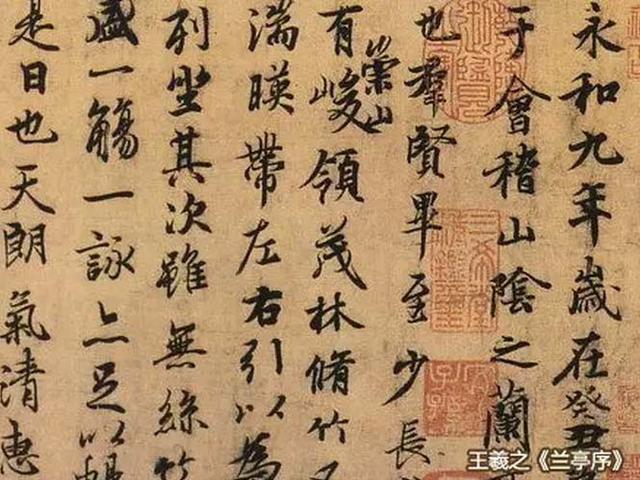 永和九年歲在癸丑
于會稽山陰之蘭
也羣賢畢至少長
有崇山峻領茂林脩竹又
湍暎帶左右引以為
列坐其次雖無絲竹
盛一觴一詠亦足以暢
是日也天朗氣清惠
三希堂精鑑璽
王羲之《兰亭序》